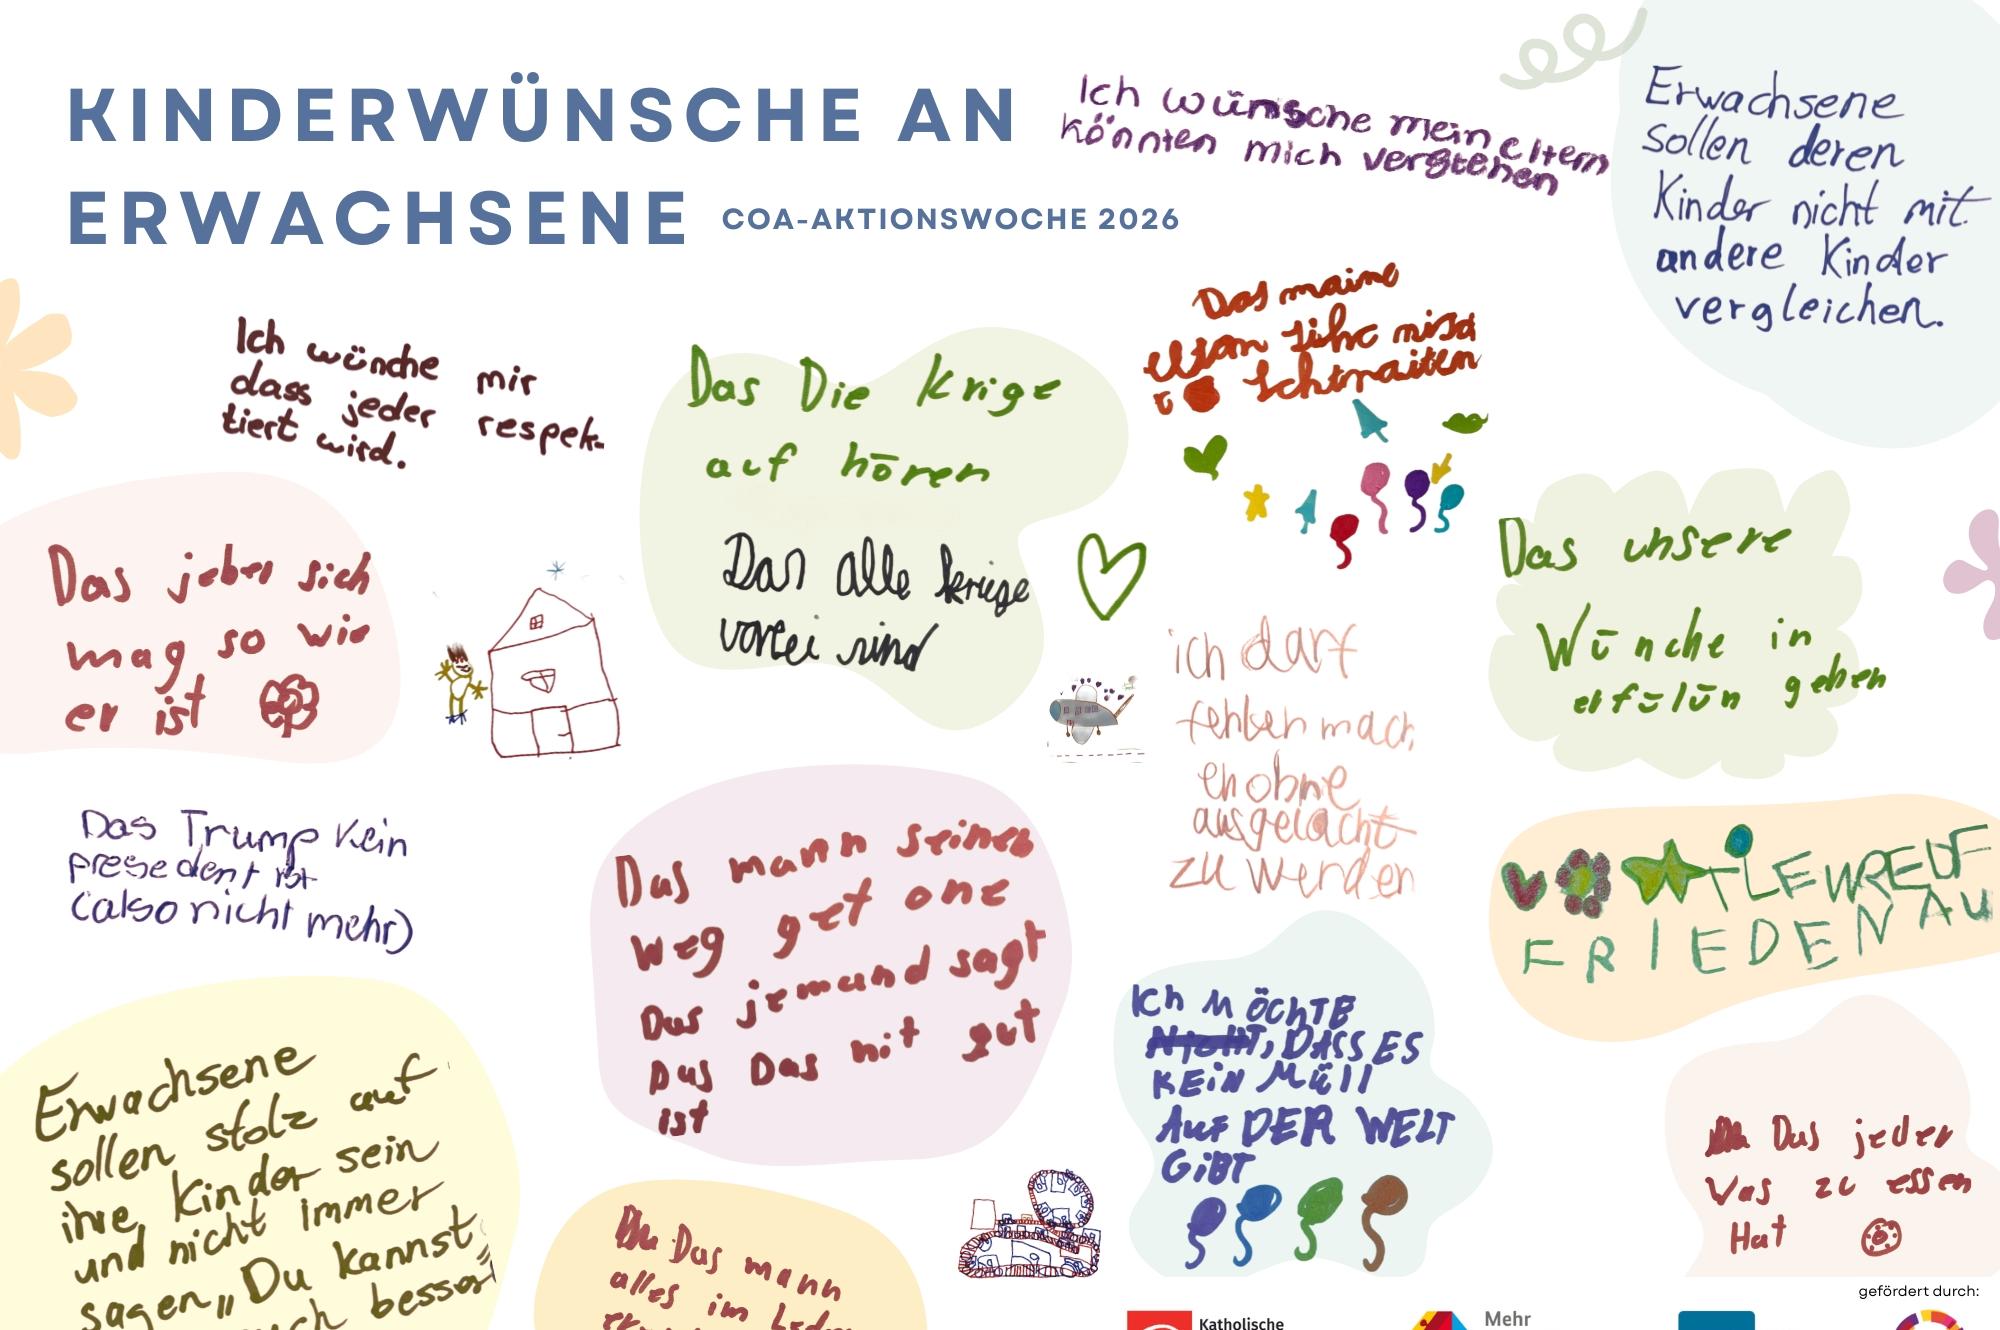 KINDERWÜNSCHE AN
ERWACHSENE COA-AKTIONSWOCHE 2026
Ich wünsche mein eltern
könnten mich verstehen
Erwachsene
sollen deren
Kinder nicht mit
andere Kinder
vergleichen.
Ich wünche mir
dass jeder respek-
tiert wird.
Das Die Krige
auf hören
Das alle kriege
vorbei sind
Das maine
nicht
schtraiten
Das jeber sich
mag so wie
er ist
ich darf
fehler mach
en ohne
ausgelacht
zu werden
Das unsere
Wünche in
erfülün gehen
Das Trump kein
presedent ist
(also nicht mehr)
Das mann seinen
weg get one
Das jemand sagt
Das Das nit gut
ist
FRIEDENAU
Ich MÖCHTE
NICHT, DASS ES
KEIN MÜLL
AUF DER WELT
GIBT
Das jeder
Was zu essen
Hat
Erwachsene
sollen stolz auf
ihre Kinder sein
und nicht immer
sagen „Du kannst
besser
Das mann
alles im
gefördert durch:
Katholische
Mehr